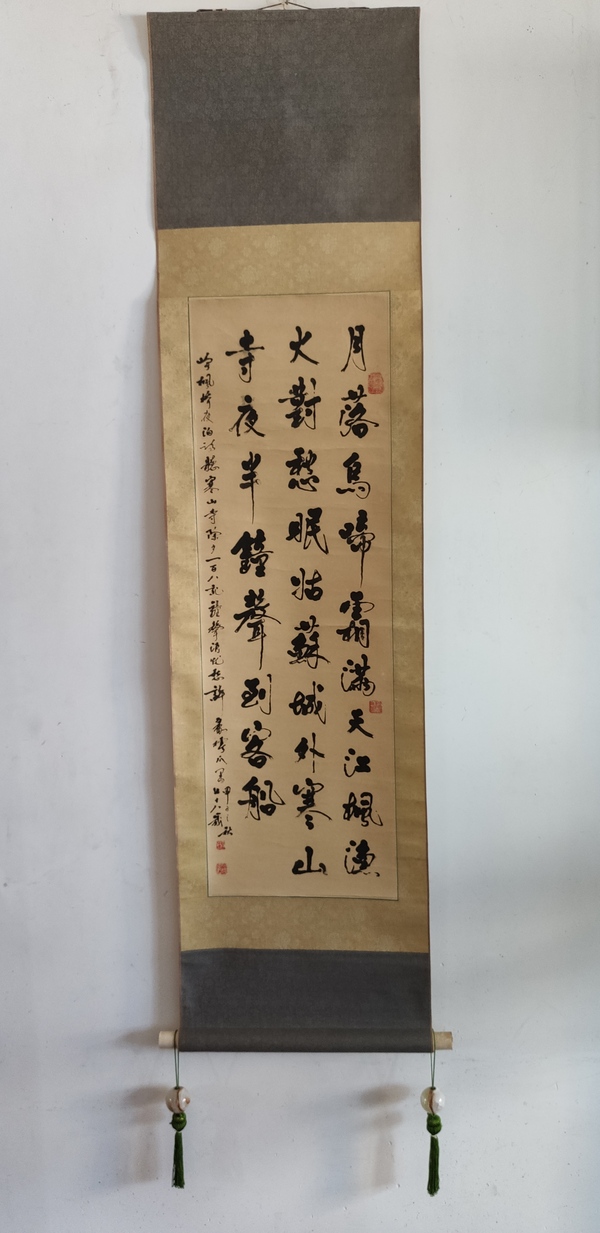 月落烏啼霜滿天江楓漁
火對愁眠姑蘇城外寒山
寺夜半鐘聲到客船
吟楓橋夜泊詩聽寒山寺除夕一百八鐘聲
七十八歲